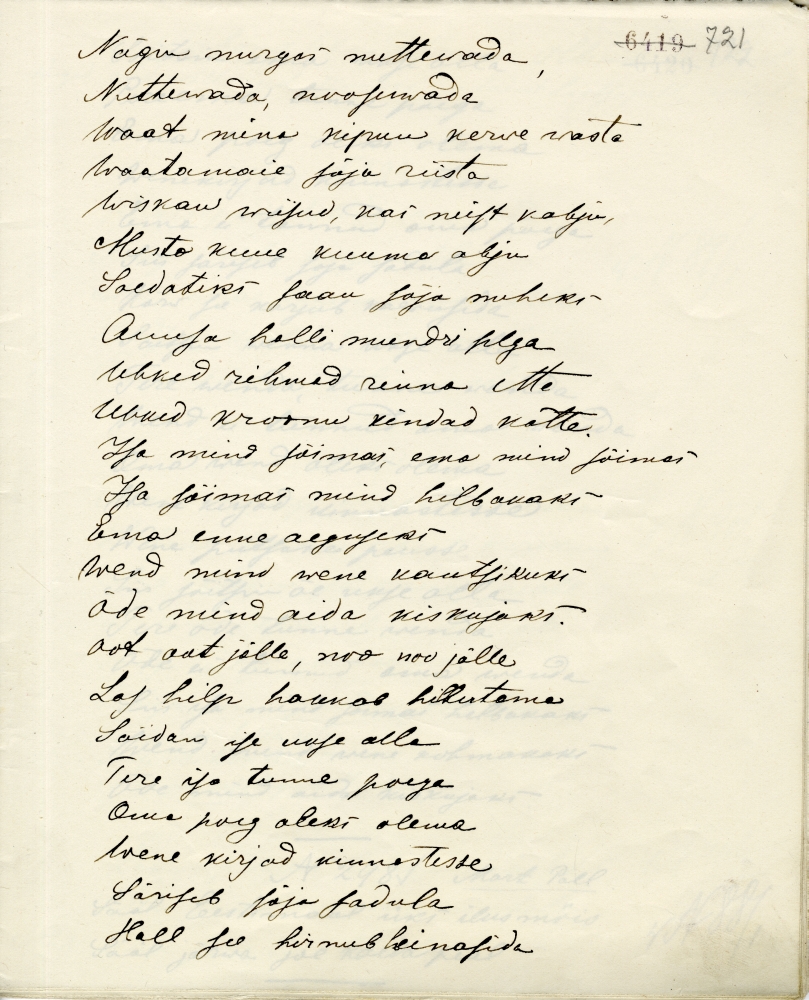 6419 721
Nägin nurgas nuttewada,
Nuttewada, noosuwada
Waat mina kipun kerwe wasta
Waatamaie sõja riista
Wiskan wiisud, kas neist kahju,
Musta kuue kuuma ahju
Soldatiks saan sõja meheks
Auusa halli mundri selga
Uhked rihmad rinna ette
Uhked kroonu kindad kätte.
Isa mind sõimas, ema mind sõimas
Isa sõimas mind hilbakaks
Ema enne aegseks
Wend mind wene kautsikuks
Õde mind aida kiskujaks.
Oot oot jälle, noo noo jälle
Las hilp hakkab hilbutama
Sõidan ise ukse alla
Tere isa tunne poega
Oma poeg oleks olema
Wene kirjad kinnastesse
Säriseb sõja sadula
Hall see hirnub heinasida